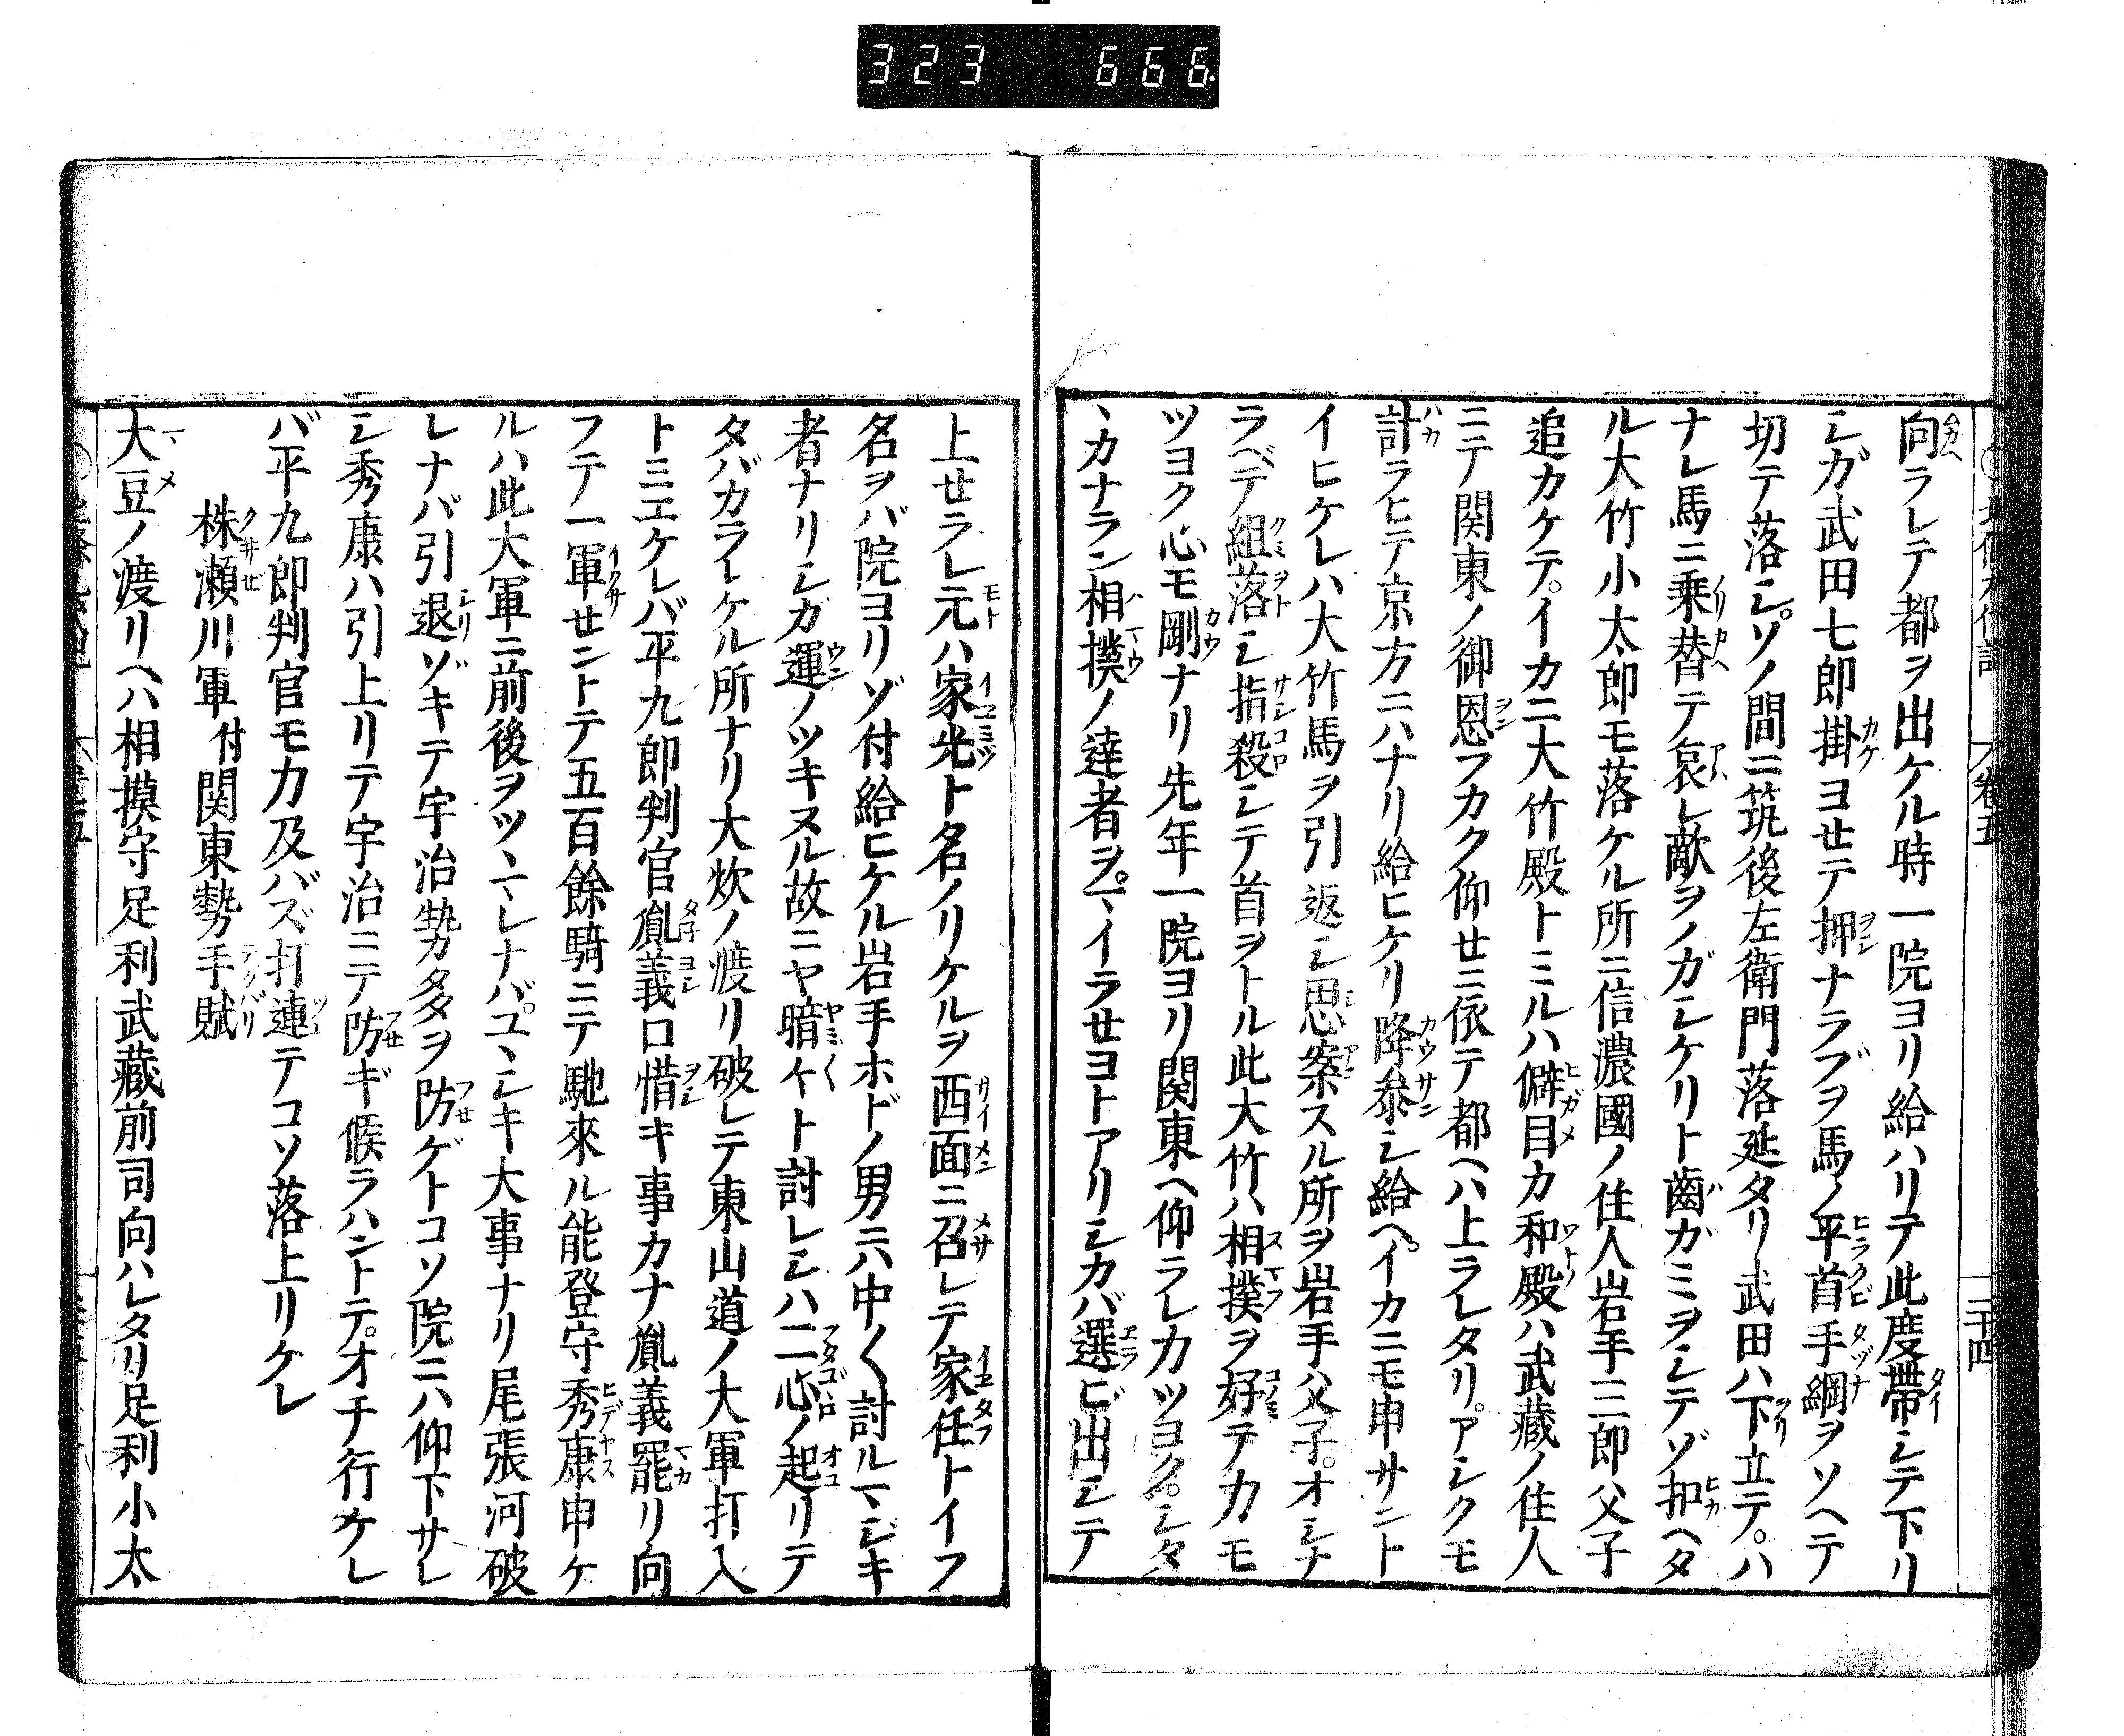 323 666
向ラレテ都ヲ出ケル時一院ヨリ給ハリテ此度帶シテ下リ
シガ武田七郎掛ヨセテ押ナラブヲ馬ノ平首手綱ヲソヘテ
切テ落シ。ソノ間ニ筑後左衛門落延タリ武田ハ下立テ。ハ
ナレ馬ニ乗替テ哀レ敵ヲノガシケリト齒ガミヲシテゾ扣ヘタ
ル大竹小太郎モ落ケル所ニ信濃國ノ住人岩手三郎父子
追カケテ。イカニ大竹殿トミルハ僻目カ和殿ハ武藏ノ住人
ニテ関東ノ御恩フカク仰セニ依テ都ヘハ上ラレタリ。アシクモ
計ラヒテ京方ニハナリ給ヒケリ降参シ給ヘ。イカニモ申サント
イヒケレハ大竹馬ヲ引返シ思案スル所ヲ岩手ハ父子。オシナ
ラベテ組落シ指殺シテ首ヲトル此大竹ハ相撲ヲ好テカモ
ツヨク心モ剛ナリ先年一院ヨリ関東ヘ仰ラレカツヨク。シタ
ヽカナラン相撲ノ達者ヲ。マイラセヨトアリシカバ選ビ出シテ
上セラレ元ハ家光ト名ノリケルヲ西面ニ召レテ家任トイフ
名ヲバ院ヨリゾ付給ヒケル岩手ホドノ男ニハ中〱討ルマジキ
者ナリシガ運ノツキヌル故ニヤ暗ケト討レシハ二心ノ起リテ
タバカラレケル所ナリ大炊ノ渡リ破レテ東山道ノ大軍打入
トミエケレバ平九郎判官胤義口惜キ事カナ胤義罷リ向
フテ一軍セントテ五百餘騎ニテ馳來ル能登守秀康申ケ
ルハ此大軍ニ前後ヲツヽマレナバ。ユヽシキ大事ナリ尾張河破
レナバ引退ゾキテ宇治勢タヲ防ゲトコソ院ニハ仰下サレ
シ秀康ハ引上リテ宇治ニテ防ギ候ラハントテ。オチ行ケレ
バ平九郎判官モカ及バズ打連テコソ落上リケレ
株瀬川軍 付関東勢手賦
大豆ノ渡リヘハ相摸守足利武藏前司向ハレタリ足利小太